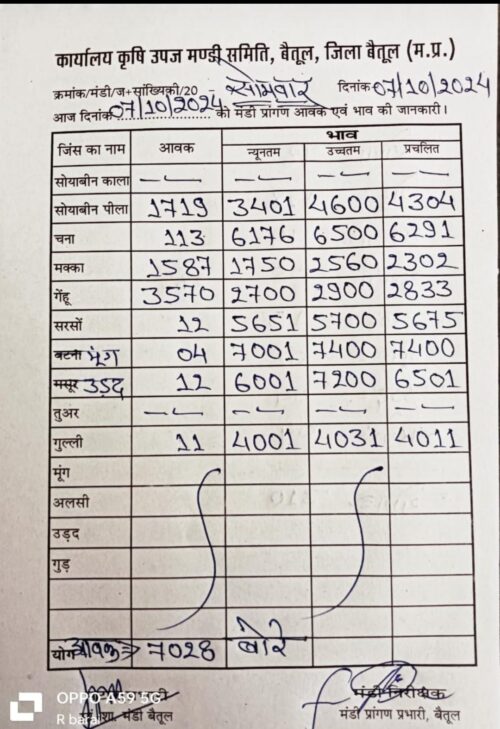 कार्यालय कृषि उपज मण्डी समिति, बैतूल, जिला बैतूल (म.प्र.)
क्रमांक/मंडी/ज+सांख्यिकी/20 - सोमवार दिनांक 07/10/2024
आज दिनांक 07/10/2024 की मंडी प्रांगण आवक एवं भाव की जानकारी।
जिंस का नाम आवक भाव
न्यूनतम उच्चतम प्रचलित
सोयाबीन काला — — — — — — — —
सोयाबीन पीला 1719 3401 4600 4304
चना 113 6176 6500 6291
मक्का 1587 1750 2560 2302
गेंहू 3570 2700 2900 2833
सरसों 12 5651 5700 5675
बटना मूंग 04 7001 7400 7400
मसूर उड़द 12 6001 7200 6501
तुअर — — — — — — — —
गुल्ली 11 4001 4031 4011
मूंग
अलसी
उड़द
गुड़
योग आवक⇒ 7028 बोरे
मंडी निरीक्षक
शा. मंडी बैतूल मंडी प्रांगण प्रभारी, बैतूल
OPPO A59 5G
R bara